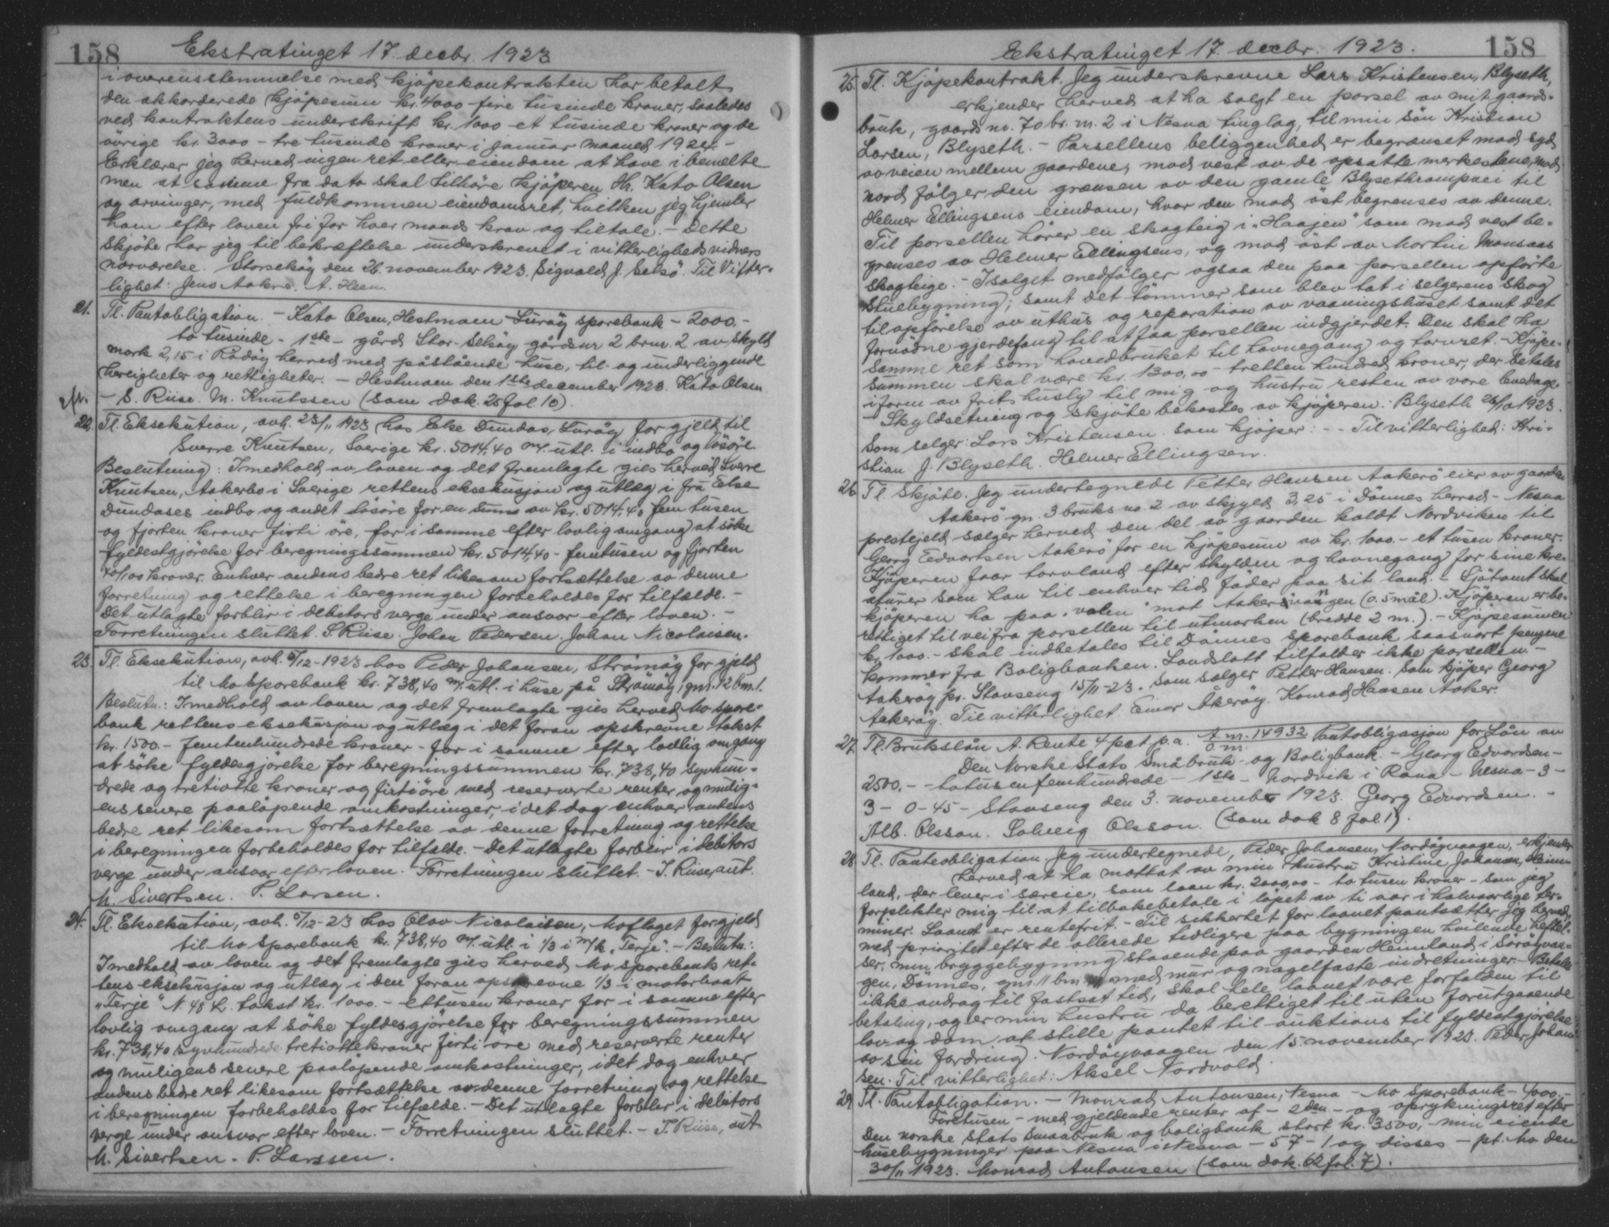 158 Ekstratinget 17 decbr. 1923
i overensstemmelse med kjöpekontrakten har betalt
den akkorderede kjöpesum kr. 4000 fire tusinde kroner, saaledes
ved kontraktens underskrift kr. 1000 et tusinde kroner og de
övrige kr. 3000 - tre tusinde kroner i januar maaned 1924. -
Erklærer jeg herved ingen ret eller eiendom at have i bemelte
men at samme fra dato skal tilhöre kjöperen Hr. Kato Olsen
og arvinger, med fuldkommen eiendomsret, hvilken jeg hjemler
ham efter loven fri for hver mands krav og tiltale. - Dette
skjöte har jeg til bekræftelse underskrevet i vitterligheds vidners
nærværelse. Storsekög den 26 november 1923. Sigvald J. Selsö. Til Vitter-
lighet: Jens Aakre. A. Heen.
21. Tl. Pantobligation. - Kato Olsen, Hestmoen - Luröy sparebank - 2000.-
to tusinde - 1ste - gård Stor-Selsöy gårdsnr 2 brnr. 2 av skyld
mark 2,15 i Rödöy herred med påstående huse, til og underliggende
herligheter og rettigheter. - Hestmoen den 1ste december 1923. Kato Olsen
- S. Riise. M. Knutssen (Som dok 25 fol. 10).
22. Tl. Eksekution, avh. 23/11 1923 hos Else Dundas, Luröy for gjeld til
Sverre Knutsen, Sverige kr. 5014,40 m/. utl. i indbo og lösöre
Beslutning: I medhold av loven og det fremlagte gies herved Sverre
Knutsen, Aakerbo i Sverige rettens eksekusjon og utlæg i fru Else
Dundases indbo og andet lösöre for en sum av kr. 5014,40 fem tusen
og fjorten kroner firti öre, for i samme efter lovlig omgang at söke
fyldestgjörelse for beregningssummen kr. 5014,40 - femtusen og fjorten
40/100 kroner. Enhver andens bedre ret likesom fortsættelse av denne
forretning og rettelse i beregningen forbeholdes for tilfælde. -
Det utlagte forblir i debitors verge under ansvar efter loven. -
Forretningen sluttet. S. Riise. Johan Pedersen. Johan Nicolaisen.
23. Tl. Eksekution, avh. 6/12-1923 hos Peder Johansen, Strömöy for gjeld
til Mo sparebank kr. 738,40 m/. utl. i huse på Strömöy, gnr. 12 bnr. 1.
Beslutn.: I medhold av loven og det fremlagte gies herved Mo spare-
bank rettens eksekusjon og utlæg i det foran opskrevne takst
kr. 1500.- femtenhundrede kroner - for i samme efter lovlig omgang
at söke fyldesgjörelse for beregningssummen kr. 738,40 syvhun-
drede og tretiotte kroner og firtiöre med reserverte renter og mulig-
ens senere paalöpende omkostninger, i det dog enhver andens
bedre ret likesom fortsættelse av denne forretning og rettelse
i beregningen forbeholdes for tilfælde. - Det utlagte forblir i debitors
verge under ansvar efter loven. Forretningen sluttet. - S. Riise, aut.
M. Sivertsen. P. Larsen.
24. Tl. Eksekution, avh. 6/12-23 hos Olav Nicolaisen, Moflaget for gjeld
til Mo sparebank kr. 738,40 m/. utl. i 1/3 i m/k "Terje". - Beslutn.:
I medhold av loven og det fremlagte gies herved Mo sparebank ret-
tens eksekusjon og utlæg i den foran opskrevne 1/3 i motorbaat
"Terje" N. 48 L. takst kr. 1000. - ettusen kroner for i samme efter
lovlig omgang at söke fyldesgjörelse for beregningssummen
kr. 738,40 syvhundrede tretiottekroner firti öre med reserverte renter
og muligens senere paalöpende omkostninger, i det dog enhver
andens bedre ret likesom fortsættelse av denne forretning og rettelse
i beregningen forbeholdes for tilfælde. - Det utlagte forblir i debitors
verge under ansvar efter loven. - Forretningen sluttet. - S. Riise, aut
M. Sivertsen. P. Larssen.
Ekstratinget 17 decbr. 1923. 158
25. Tl. Kjöpekontrakt. Jeg underskrevne Lars Kristensen, Blyseth,
erkjender herved at ha solgt en parsel av mit gaards-
bruk, gaards no. 70 br. nr. 2 i Nesna tinglag, til min sön Kristian
Larsen, Blyseth. - Parsellens beliggenhed er begrænset mod syd
av veien mellem gaardene, mod vest av de opsatte merkestene, mod
nord fölger den grænsen av den gamle Blysethrampnei til
Helmer Ellingsens eiendom, hvor den mod öst begrenses av denne.
Til parsellen hörer en skogteig i "Haajen" som mod vest be-
grenses av Helmer Edlingsens, og mod öst av Martin Monsaas
skogteige. - I salget medfölger ogsaa den paa parsellen opförte
stuebygning; samt det tömmer som blev tat i selgerens skog
til opförelse av uthus og reparation av vaaningshuset samt det
fornödne gjerdefang til at faa parsellen indgjerdet. Den skal ha
samme ret som hovedbruket til havnegang og torvret. - Kjöpe-
summen skal være kr. 1300,00 - tretten hundred kroner, der betales
i form av frit husly til mig og hustru resten av vore levedage.
- Skyldsetning og skjöte bekostes av kjöperen. Blyseth 26/10 1923.
Som selger: Lars Kristensen. Som kjöper: - - Til vitterlighed: Kri-
stian J. Blyseth. Helmer Ellingsen.
26. Tl. Skjöte. Jeg undertegnede Petter Hansen Aakerö eier av gaarden
Aakerö gn. 3 bruks no. 2 av skyld 3,25 i Dönnes herred - Nesna
prestegjeld sælger herved den del av gaarden kaldt Nordviken til
Georg Edvartsen Aakerö for en kjöpesum av kr. 1000.- et tusen kroner.
Kjöperen faar torvland efter skylden og havnegang for sine kre-
aturer som han til enhver tid föder paa sit land. - Sjötomt skal
kjöperen ha paa "valen" mot Aakervaagen (0.5 mål). Kjöperen er be-
rettiget til vei fra parsellen til utmarken (bredde 2 m.). - Kjöpesummen
kr. 1000.- skal indbetales til Dönnes sparebank saasnart pengene
kommer fra Boligbanken. Landslott tilfalder ikke parsellen. -
Aakeröy pr. Slavseng 15/11-23. Som sælger Petter Hansen. Som kjöper Georg
Aakeröy. Til vitterlighet Einar Åkeröy. Konrad Hansen Aaker.
27. Tl. Brukslån A. Rente 4 pct p.a. A m. 14932 Pantobligasjon for Lån av
Den Norske Stats Småbruk- og Boligbank - Georg Edvardsen -
2500.- - totusen femhundrede - 1ste - Nordvik i Rana - Nesna - 3 -
3 - 0-45 - Slavseng den 3. november 1923. Georg Edvardsen. -
Alb. Olsson. Solveig Olsson. (Som dok 8 fol. 1).
28. Tl. Panteobligation. Jeg undertegnede, Peder Johansen, Nordöyvaagen, erkjender
herved at ha mottat av min hustru Kristine Johansen, Heim-
land, der lever i særeie, som laan kr. 2000,00 - to tusen kroner - som jeg
forplikter mig til at tilbakebetale i löpet av ti aar i halvaarlige ter-
miner. Laanet er rentefrit. - Til sikkerhet for laanet pantsætter jeg herved,
med prioritet efter de allerede tidligere paa bygningen hvilende heftel-
ser, min bryggebygning staaende paa gaarden Heimland i Söröyvaa-
gen, Dönnes, gnr. 11 bnr. med mur og nagelfaste indretninger. Betales
ikke avdrag til fastsat tid, skal hele laanet være forfalden til
betaling, og er min hustru da berettiget til uten forutgaaende
lov og dom at stille pantet til auktion til fyldestgjörelse
av sin fordring. Nordöyvaagen den 15 november 1923. Peder Johan-
sen. Til vitterlighet: Aksel Nordvold.
29. Tl. Pantobligation. - Monrad Antonsen, Nesna - Mo sparebank - 4000.-
Firetusen - med gjeldende renter af - 2den - og oprykningsret efter
Den norske Stats Smaabruk og boligbank stort kr. 3500,- min eiende
husebygninger paa Nesna i Nesna - 57 - 1 og disses - pt. Mo den
30/11 1923. Monrad Antonsen (som dok. 62 fol. 7).